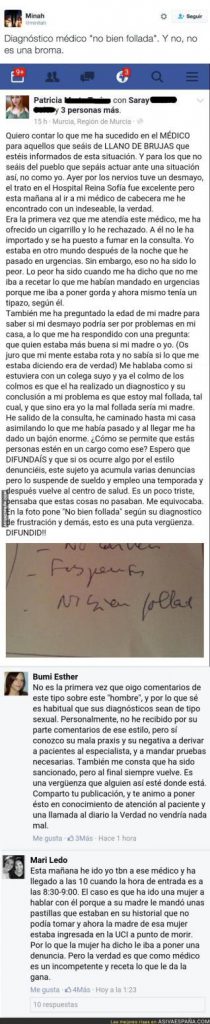 Minah
@minitah
Seguir
Diagnóstico médico "no bien follada". Y no, no
es una broma.
9+
3
Patricia
con Saray
y 3 personas más.
15 h · Murcia, Región de Murcia ·
Quiero contar lo que me ha sucedido en el MÉDICO
para aquellos que seáis de LLANO DE BRUJAS que
estéis informados de esta situación. Y para los que no
seáis del pueblo que sepáis actuar ante una situación
así, no como yo. Ayer por los nervios tuve un desmayo,
el trato en el Hospital Reina Sofía fue excelente pero
esta mañana al ir a mi médico de cabecera me he
encontrado con un indeseable, la verdad.
Era la primera vez que me atendía este médico, me ha
ofrecido un cigarrillo y lo he rechazado. A él no le ha
importado y se ha puesto a fumar en la consulta. Yo
estaba en otro mundo después de la noche que he
pasado en urgencias. Sin embargo, eso no ha sido lo
peor. Lo peor ha sido cuando me ha dicho que no me
iba a recetar lo que me habían mandado en urgencias
porque me iba a poner gorda y ahora mismo tenía un
tipazo, según él.
También me ha preguntado la edad de mi madre para
saber si mi desmayo podría ser por problemas en mi
casa, a lo que me ha respondido con una pregunta:
que quien estaba más buena si mi madre o yo. (Os
juro que mi mente estaba rota y no sabía si lo que me
estaba diciendo era de verdad) Me hablaba como si
estuviera con un colega suyo y ya el colmo de los
colmos es que el ha realizado un diagnostico y su
conclusión a mi problema es que estoy mal follada, tal
cual, y que sino era yo la mal follada sería mi madre.
He salido de la consulta, he caminado hasta mi casa
asimilando lo que me había pasado y al llegar me ha
dado un bajón enorme. ¿Cómo se permite que estás
personas estén en un cargo como ese? Espero que
DIFUNDAÍS y que si os ocurre algo por el estilo
denunciéis, este sujeto ya acumula varias denuncias
pero lo suspende de sueldo y empleo una temporada y
después vuelve al centro de salud. Es un poco triste,
pensaba que estas cosas no pasaban. Me equivocaba.
En la foto pone "No bien follada" según su diagnostico
de frustración y demás, esto es una puta vergüenza.
DIFUNDID!!
No bien follad
Bumi Esther
No es la primera vez que oigo comentarios de
este tipo sobre este "hombre", y por lo que sé
es habitual que sus diagnósticos sean de tipo
sexual. Personalmente, no he recibido por su
parte comentarios de ese estilo, pero sí
conozco su mala praxis y su negativa a derivar
a pacientes al especialista, y a mandar pruebas
necesarias. También me consta que ha sido
sancionado, pero al final siempre vuelve. Es
una vergüenza que alguien así esté donde está.
Comparto tu publicación, y te animo a poner
ésto en conocimiento de atención al paciente y
una llamada al diario la Verdad no vendría nada
mal.
Me gusta · 3 Más · Hace 1 hora
Mari Ledo
Esta mañana he ido yo tbn a ese médico y ha
llegado a las 10 cuando la hora de entrada es a
las 8:30-9:00. El caso es que ha ido una mujer a
hablar con él porque a su madre le mandó unas
pastillas que estaban en su historial que no
podía tomar y ahora la madre de esa mujer
estaba ingresada en la UCI a punto de morir.
Por lo que la mujer ha dicho le iba a poner una
denuncia. Pero la verdad es que como médico
es un incompetente y receta lo que le da la
gana.
Me gusta · 4 Más · Hoy a la 1:23
10 respuestas
ASIVAESPAÑA.COM